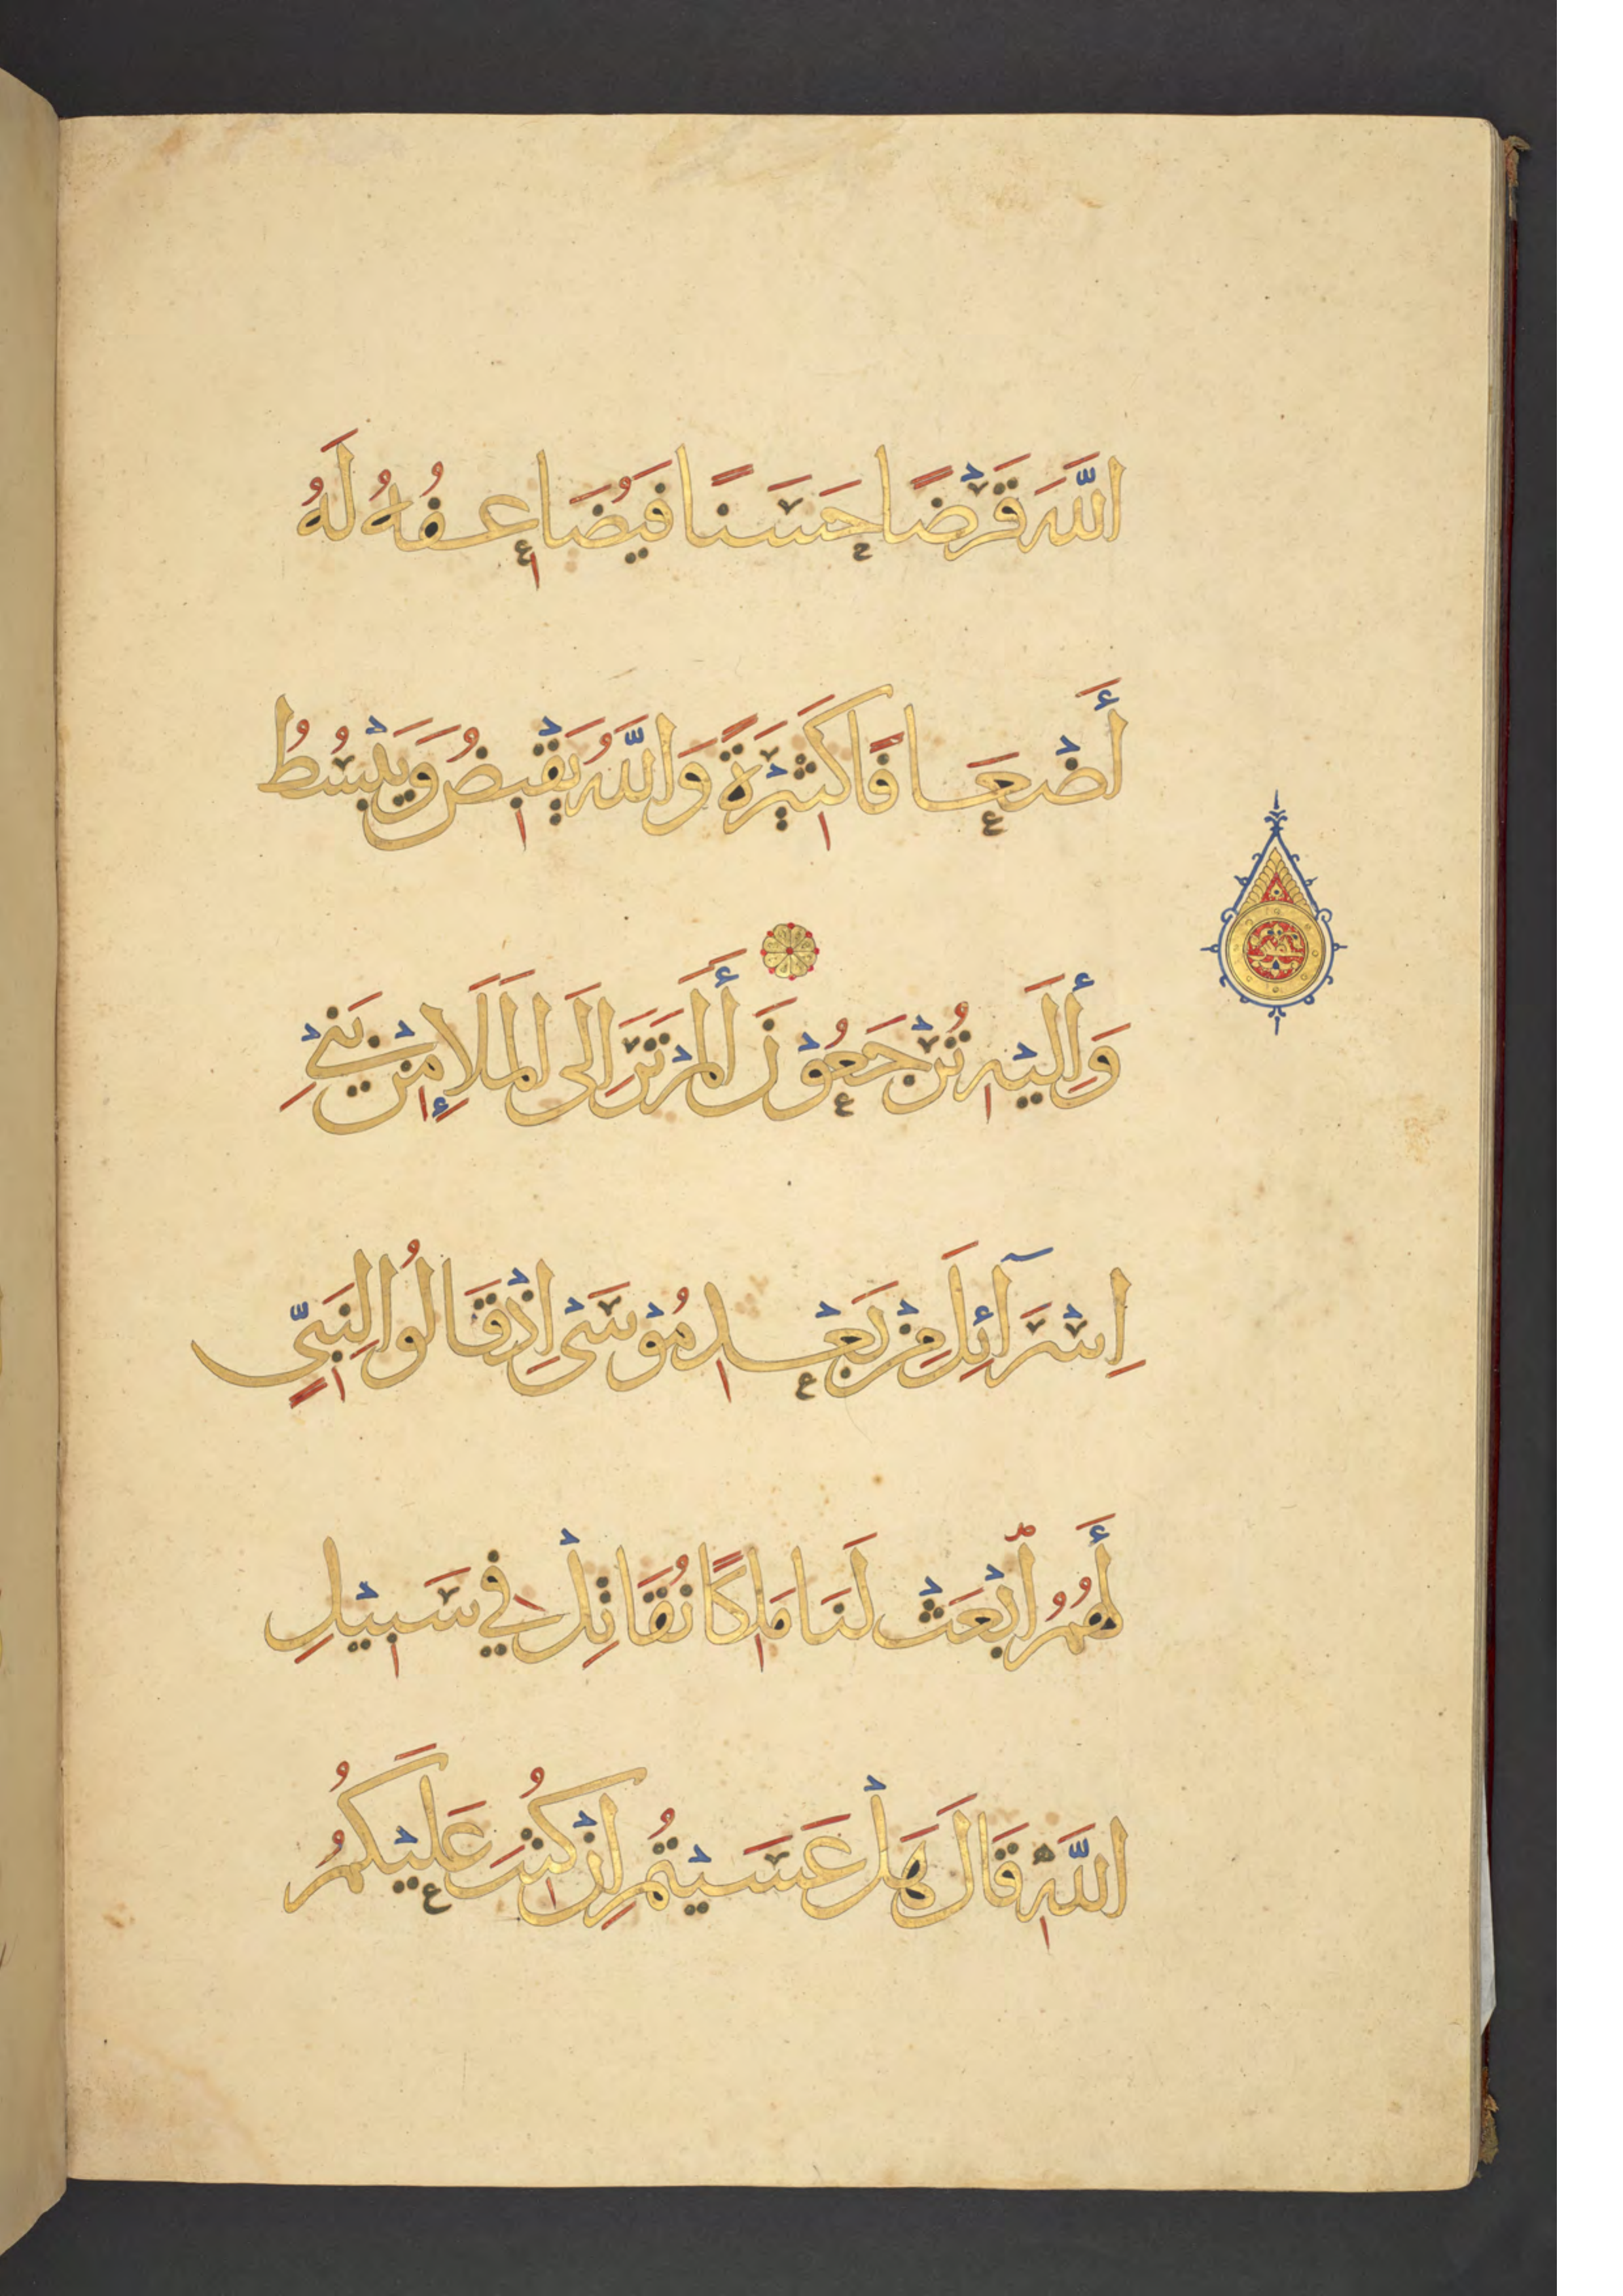 اللَّهَ قَرْضًا حَسَنًا فَيُضَاعِفُهُ لَهُ
أَضْعَافًا كَثِيْرَةً وَاللَّهُ يَقْبِضُ وَيَبْسُطُ
وَإِلَيْهِ تُرْجَعُوْنَ أَلَمْ تَرَ إِلَى الْمَلَإِ مِنْ بَنِيْ
إِسْرَآئِلَ مِنْ بَعْدِ مُوْسَىٰ إِذْ قَالُوا لِنَبِيٍّ
لَهُمُ ابْعَثْ لَنَا مَلِكًا نُقَاتِلْ فِي سَبِيْلِ
اللَّهِ قَالَ هَلْ عَسَيْتُمْ إِنْ كُتِبَ عَلَيْكُمُ